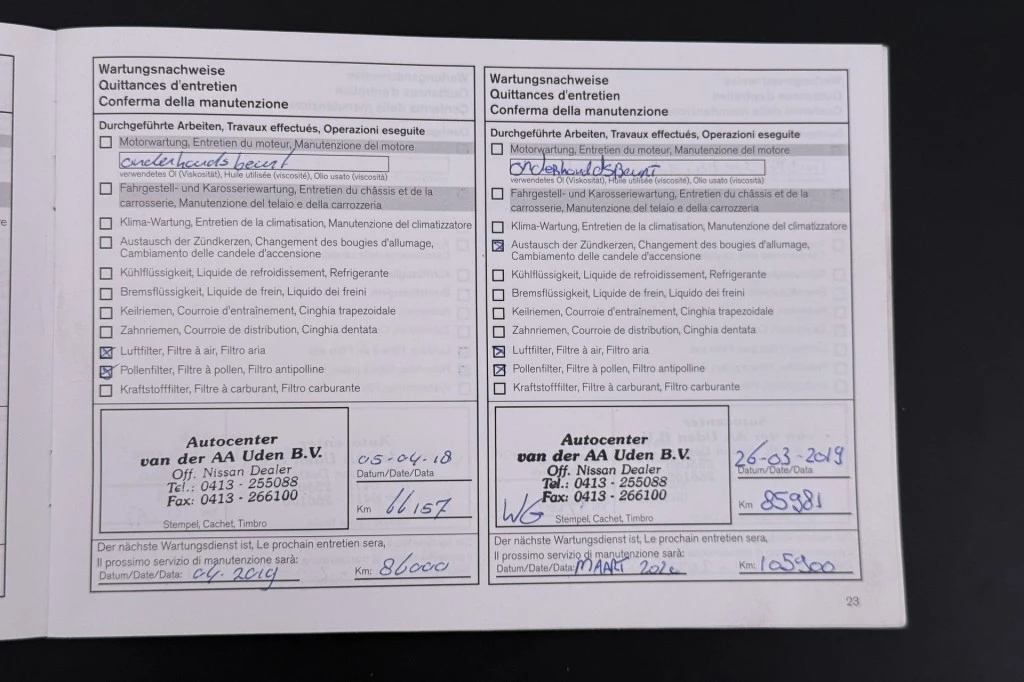 Wartungsnachweise
Quittances d'entretien
Conferma della manutenzione
Durchgeführte Arbeiten, Travaux effectués, Operazioni eseguite
Motorwartung, Entretien du moteur, Manutenzione del motore
onderhoudsbeurt
verwendetes Öl (Viskosität), Huile utilisée (viscosité), Olio usato (viscosità)
Fahrgestell- und Karosseriewartung, Entretien du châssis et de la
carrosserie, Manutenzione del telaio e della carrozzeria
Klima-Wartung, Entretien de la climatisation, Manutenzione del climatizzatore
Austausch der Zündkerzen, Changement des bougies d'allumage,
Cambiamento delle candele d'accensione
Kühlflüssigkeit, Liquide de refroidissement, Refrigerante
Bremsflüssigkeit, Liquide de frein, Liquido dei freini
Keilriemen, Courroie d'entraînement, Cinghia trapezoidale
Zahnriemen, Courroie de distribution, Cinghia dentata
Luftfilter, Filtre à air, Filtro aria
Pollenfilter, Filtre à pollen, Filtro antipolline
Kraftstofffilter, Filtre à carburant, Filtro carburante
Autocenter
van der AA Uden B.V.
Off. Nissan Dealer
Tel.: 0413 - 255088
Fax: 0413 - 266100
Stempel, Cachet, Timbro
05-04-18
Datum/Date/Data
Km 66157
Der nächste Wartungsdienst ist, Le prochain entretien sera,
Il prossimo servizio di manutenzione sarà:
Datum/Date/Data: 04-2019 Km: 86000
Wartungsnachweise
Quittances d'entretien
Conferma della manutenzione
Durchgeführte Arbeiten, Travaux effectués, Operazioni eseguite
Motorwartung, Entretien du moteur, Manutenzione del motore
onderhoudsBeurt
verwendetes Öl (Viskosität), Huile utilisée (viscosité), Olio usato (viscosità)
Fahrgestell- und Karosseriewartung, Entretien du châssis et de la
carrosserie, Manutenzione del telaio e della carrozzeria
Klima-Wartung, Entretien de la climatisation, Manutenzione del climatizzatore
Austausch der Zündkerzen, Changement des bougies d'allumage,
Cambiamento delle candele d'accensione
Kühlflüssigkeit, Liquide de refroidissement, Refrigerante
Bremsflüssigkeit, Liquide de frein, Liquido dei freini
Keilriemen, Courroie d'entraînement, Cinghia trapezoidale
Zahnriemen, Courroie de distribution, Cinghia dentata
Luftfilter, Filtre à air, Filtro aria
Pollenfilter, Filtre à pollen, Filtro antipolline
Kraftstofffilter, Filtre à carburant, Filtro carburante
Autocenter
van der AA Uden B.V.
Off. Nissan Dealer
Tel.: 0413 - 255088
Fax: 0413 - 266100
WG Stempel, Cachet, Timbro
26-03-2019
Datum/Date/Data
Km 85981
Der nächste Wartungsdienst ist, Le prochain entretien sera,
Il prossimo servizio di manutenzione sarà:
Datum/Date/Data: MAART 2020 Km: 105900
23